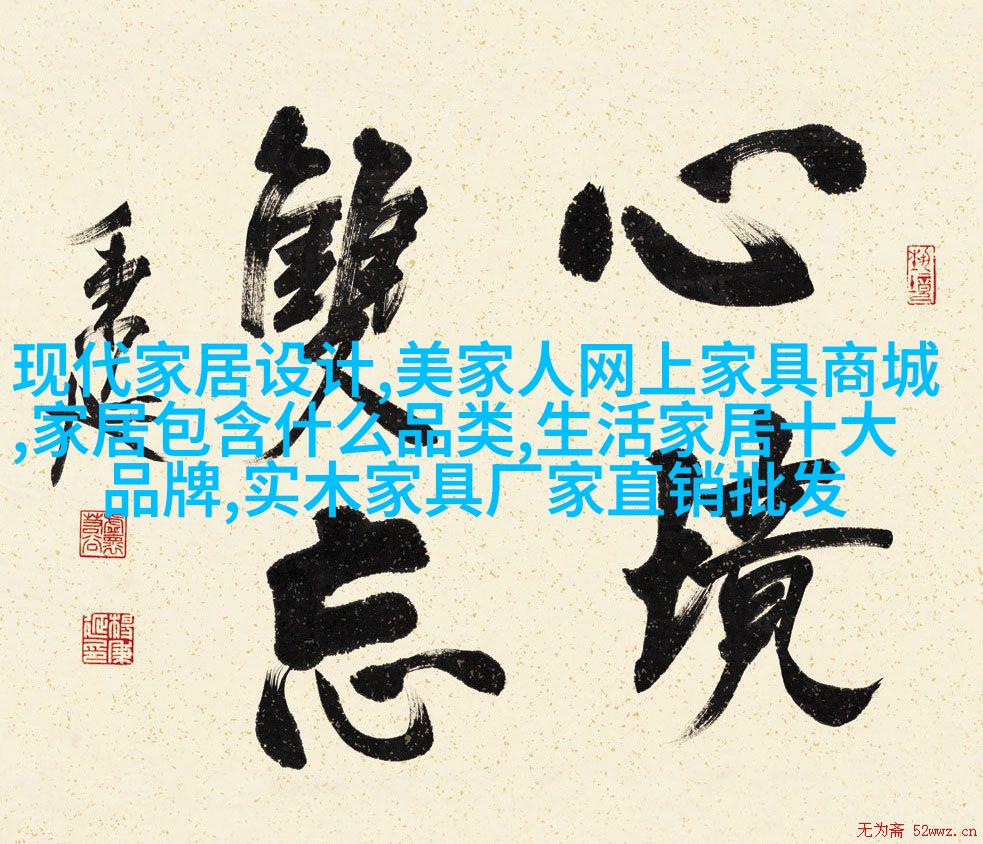 心境
雙忘
秉延
现代家居设计,美家人网上家具商城
,家居包含什么品类,生活家居十大
品牌,实木家具厂家直销批发
无为斋 52wwz.cn